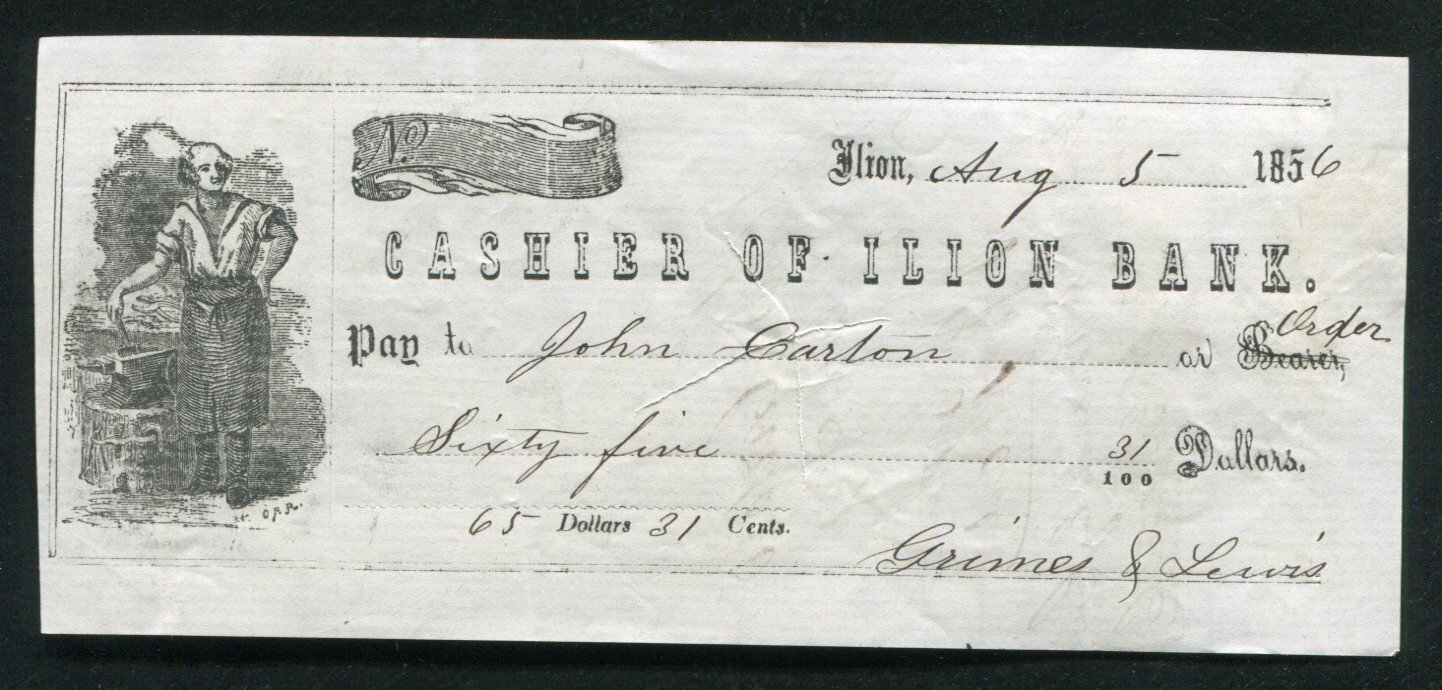 No.
Ilion, Aug 5 1856
CASHIER OF ILION BANK.
Order
Pay to John Carton or Bearer,
Sixty five 31/100 Dollars.
65 Dollars 31 Cents.
Grimes & Lewis
N. ORR.